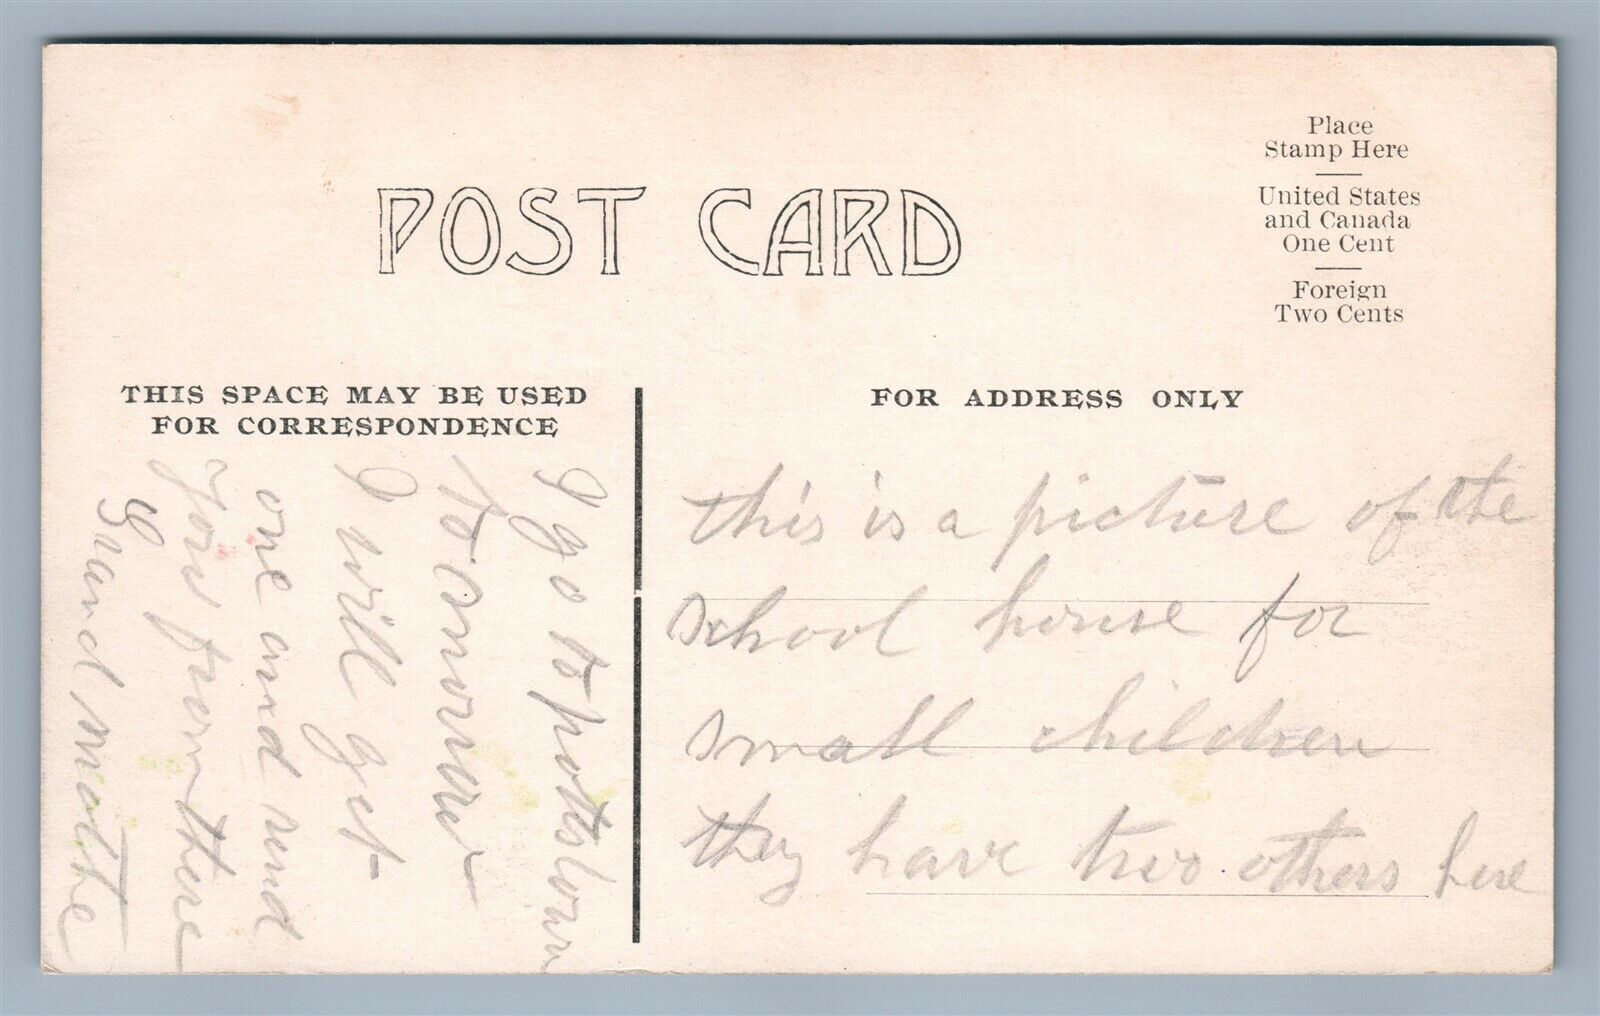 Place
Stamp Here
United States
and Canada
One Cent
Foreign
Two Cents
POST CARD
THIS SPACE MAY BE USED
FOR CORRESPONDENCE
FOR ADDRESS ONLY
this is a picture of the
school house for
small children
they have two others here
I go to pottstown
tomorrow
I will get
one and send
you from there